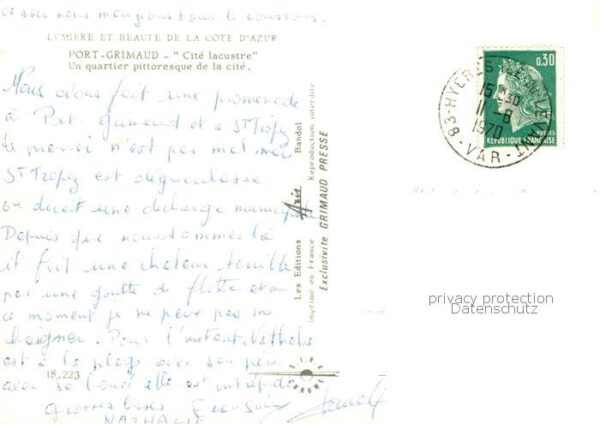 nous mangeons tous le couscous.
LUMIERE ET BEAUTE DE LA COTE D'AZUR
PORT-GRIMAUD - "Cité lacustre"
Un quartier pittoresque de la cité.
Nous avons fait une promenade
à Port Grimaud et a St Tropez
le premier n'est pas mal mais
St Tropez est dégueulasse
on dirait une décharge municipale
Depuis que nous sommes là
il fait une chaleur terrible
pas une goutte de flotte et en
ce moment je ne peux pas me
baigner. Pour l'instant Nathalie
est à la plage avec son père
avec sa bouée elle est intrépide
grosses bises Françoise
NATHALIE
18.223
Les Editions Aris Bandol
Imprimé en France Reproduction interdite
Exclusivité GRIMAUD PRESSE
0,30
POSTES
REPUBLIQUE FRANÇAISE
83-HYERES
15H30
11-8
1970
-VAR-
privacy protection
Datenschutz